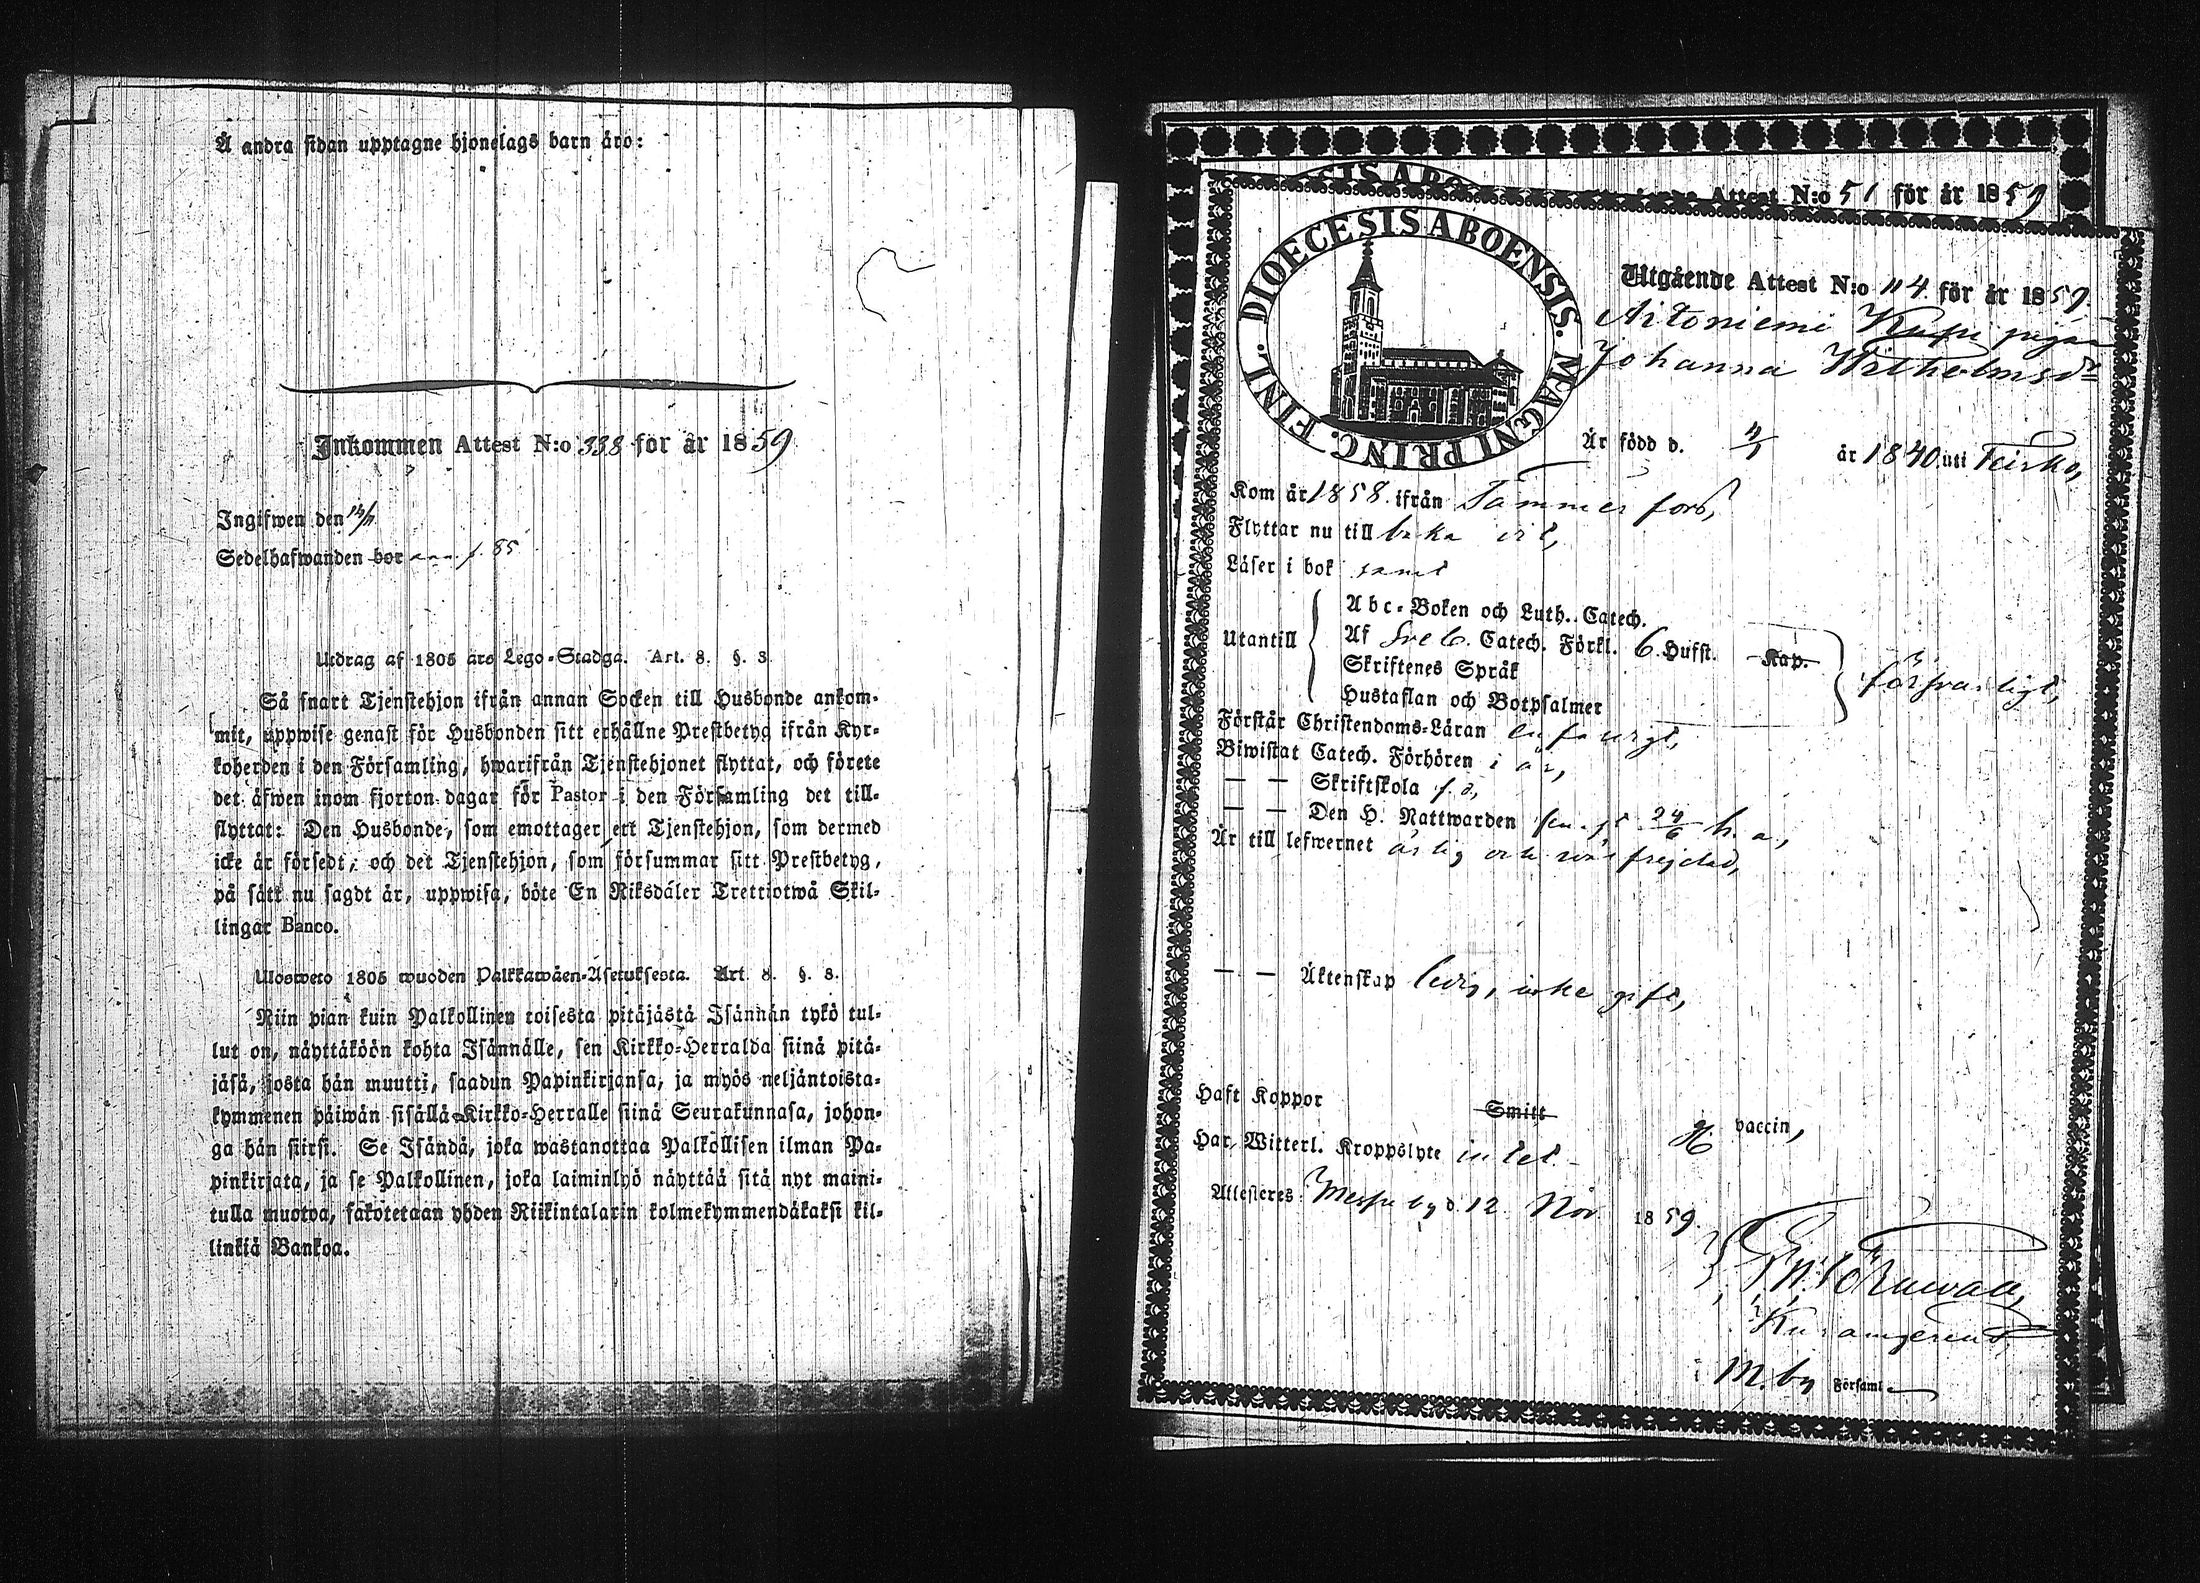 Å andra sidan upptagne hjonelags barn äro:
Inkommen Attest N:o 338 för år 1859
Ingifwen den 14/11
Sedelhafwanden bor
Utdrag af 1805 års Lego-Stadga. Art. 8. §. 3.
Så snart Tjenstehjon ifrån annan Socken till Husbonde ankom-
mit, uppwise genast för Husbonden sitt erhållne Prestbetyg ifrån Kyr-
koherden i den Församling, hwarifrån Tjenstehjonet flyttat, och förete
det äfwen inom fjorton dagar för Pastor i den Församling det till-
flyttat: Den Husbonde, som emottager ett Tjenstehjon, som dermed
icke är försedt, och det Tjenstehjon, som försummar sitt Prestbetyg,
på sätt nu sagdt är, uppwisa, böte En Riksdaler Trettiotwå Skil-
lingar Banco.
Ulosweto 1805 wuoden Palkkawäen-Asetuksesta. Art. 8. §. 3.
Niin pian kuin Palkollinen toisesta pitäjästä Isännän tykö tul-
lut on, näyttäköön kohta Isännälle, sen Kirkko-Herralda siinä pitä-
jäsä, josta hän muutti, saadun Papinkirjansa, ja myös neljäntoista-
kymmenen päiwän sisällä Kirkko-Herralle siinä Seurakunnasa, johon-
ga hän siirsi. Se Isändä, joka wastanottaa Palkollisen ilman Pa-
pinkirjata, ja se Palkollinen, joka laiminlyö näyttää sitä nyt maini-
tulla muotoa, sakotetaan yhden Riikintalarin kolmekymmendäkaksi kil-
linkiä Bankoa.
Attest N:o 51 för år 1859
DIOECESIS ABOENSIS. MAGNI PRINC. FINL.
Utgående Attest N:o 114 för år 1859.
Aitoniemi pigan
Johanna Wilhelmsdr
Är född d. 4/1 år 1840 uti Teisko,
Kom år 1858 ifrån Tammerfors,
Flyttar nu till baka dit,
Läser i bok samt
Utantill
Abc-Boken och Luth. Catech.
Af Sveb. Catech. Förkl. 6 Hufst. Kap.
Skriftenes Språk
Hustaflan och Botpsalmer
försvarligt,
Förstår Christendoms-Läran enfaldigt,
Biwistat Catech. Förhören i år,
— — Skriftskola f. å,
— — Den H. Nattwarden sen. gg. 24/6 h. a,
Är till lefwernet ärlig och wälfrejdad,
— — Äktenskap ledig, icke gift,
Haft Koppor Smitt vaccin,
Har Witterl. Kroppslyte intet
Attesteres Messuby d. 12 Nov 1859.
i M.by Församl.